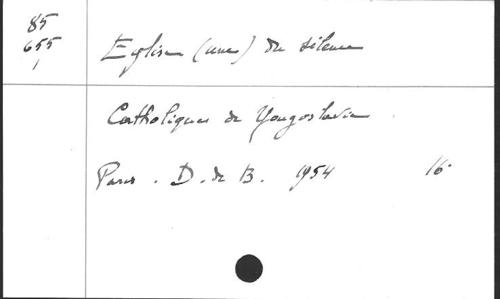 85
655
1
Eglise (une) du silence
Catholiques de Yougoslavie.
Paris. D. de B. 1954 16°